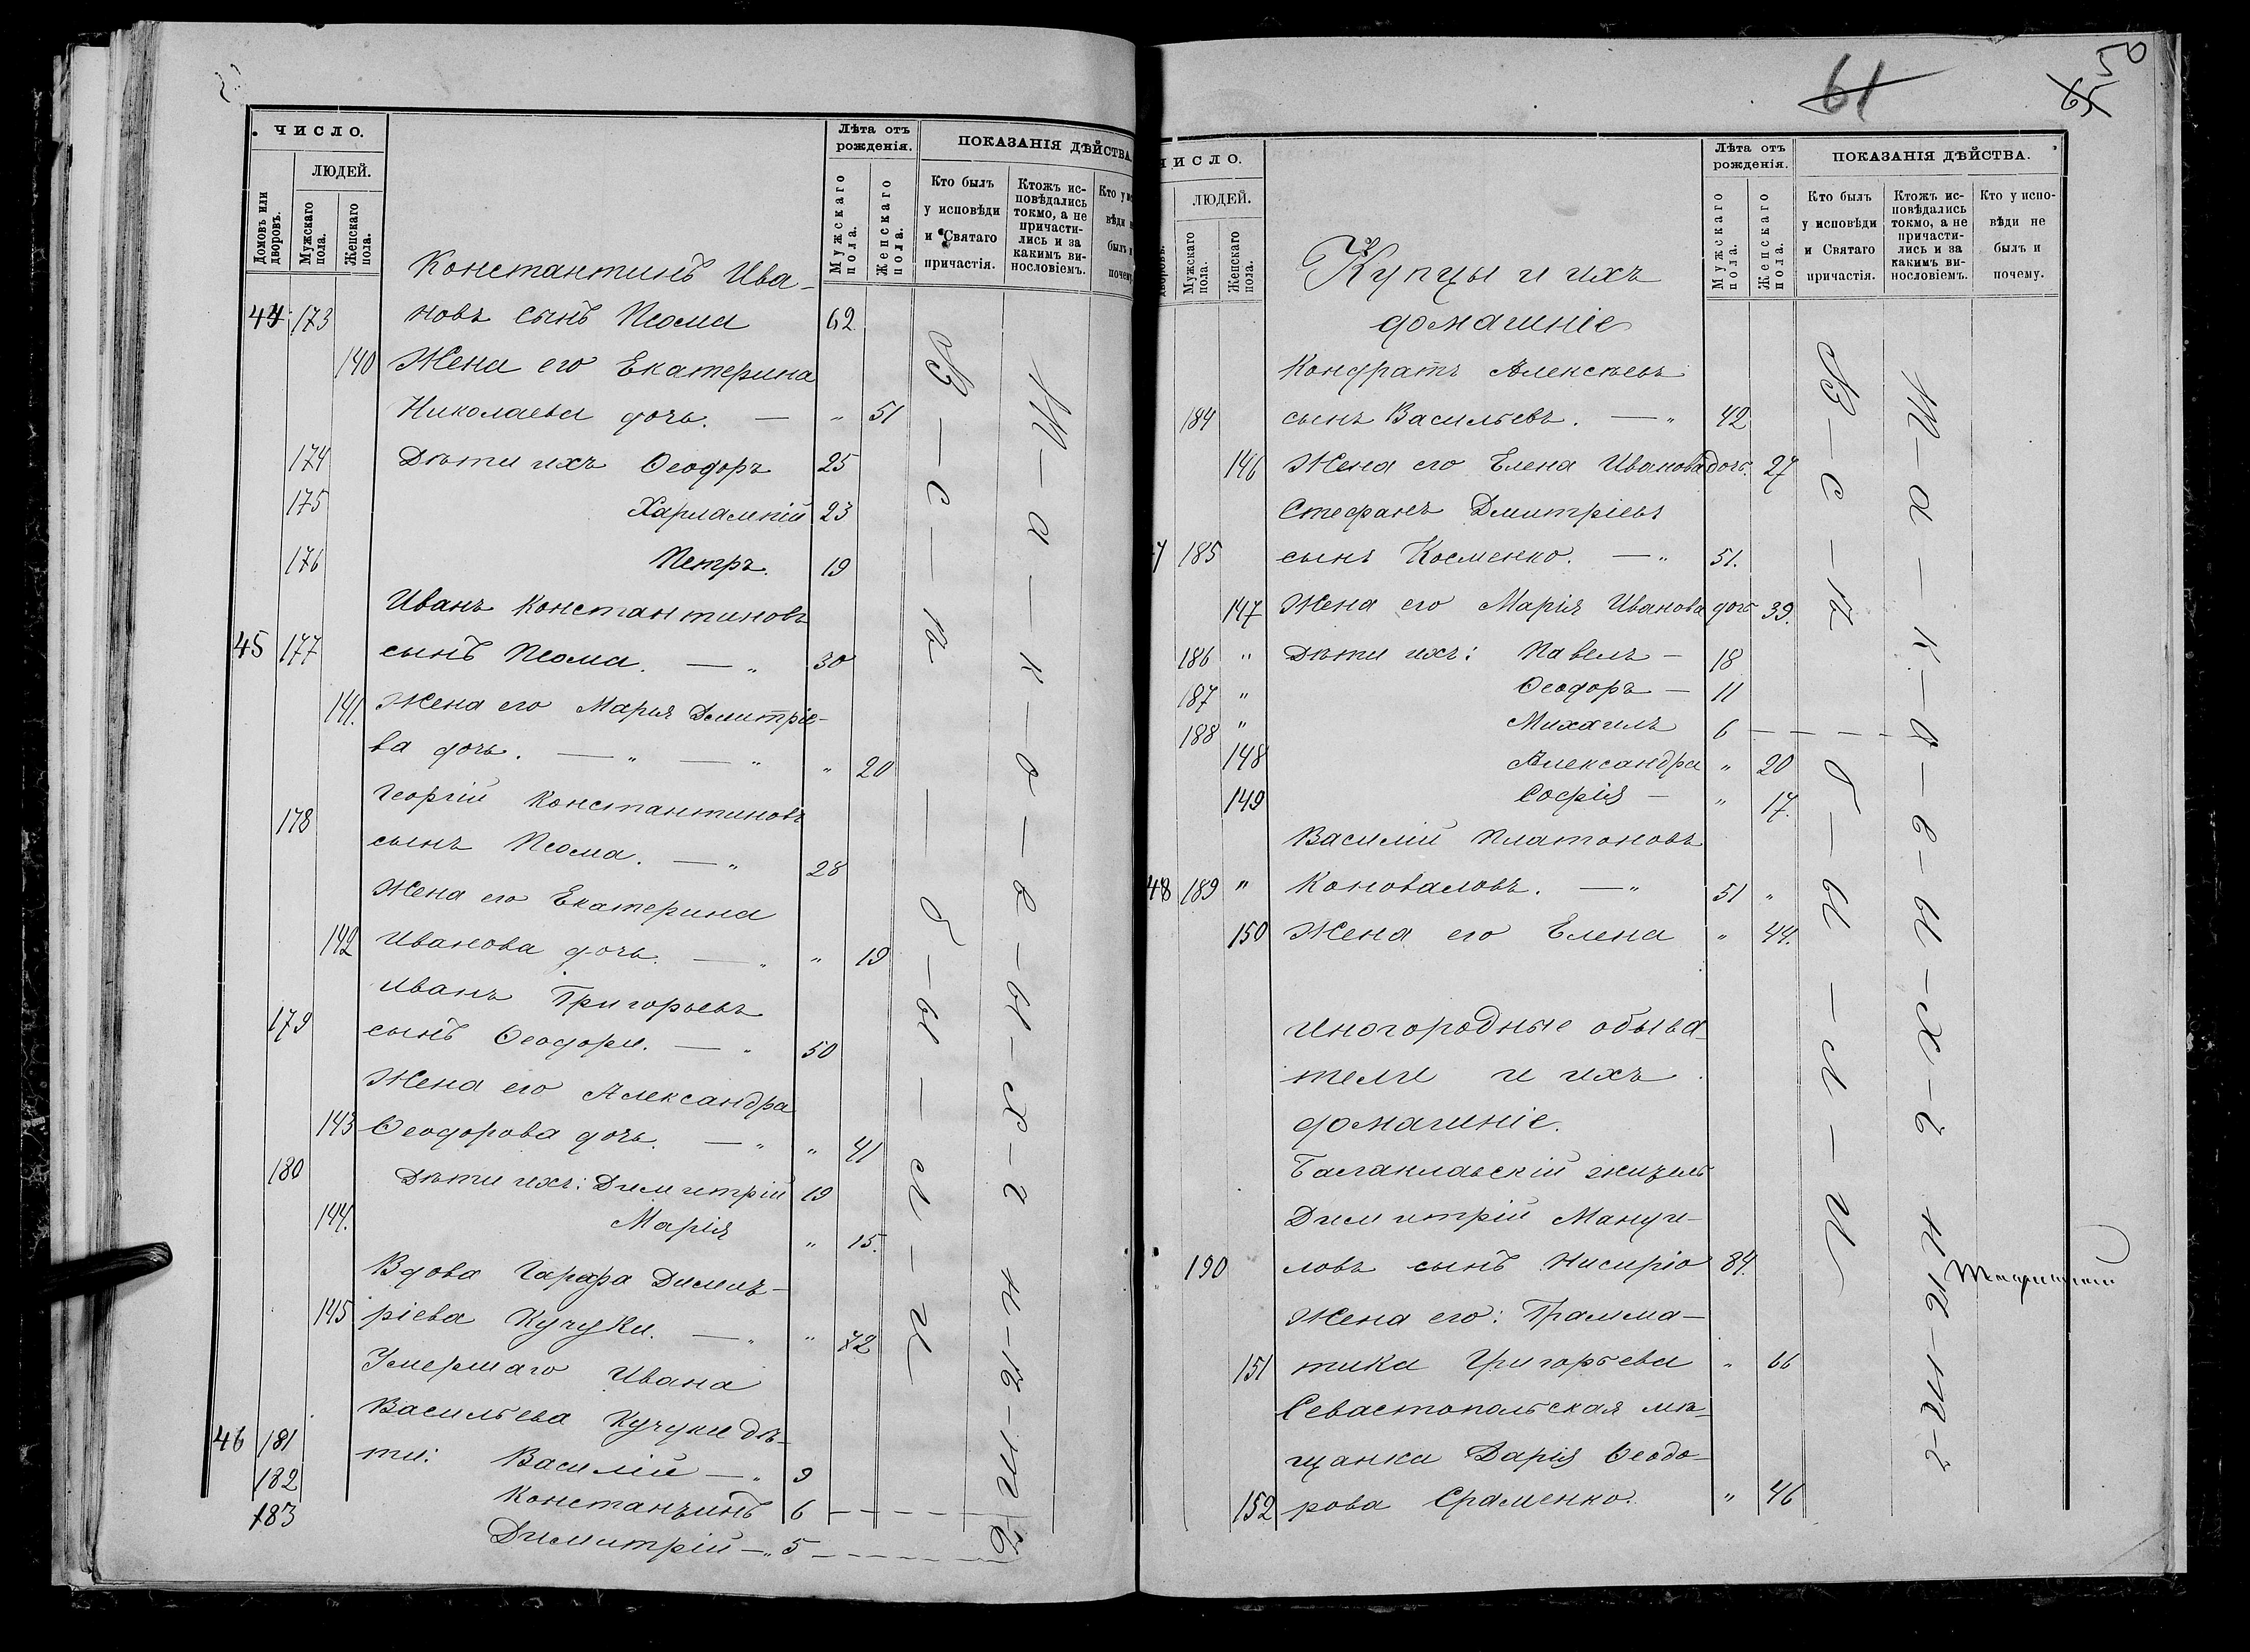 ЧИСЛО.
ЛЮДЕЙ.
Домовъ или дворовъ.
Мужскаго пола.
Женскаго пола.
Лѣта отъ рожденія.
Мужскаго пола.
Женскаго пола.
ПОКАЗАНІЯ ДѢЙСТВА.
Кто былъ у исповѣди и Святаго причастія.
Ктожъ исповѣдались токмо, а не причастились и за какимъ винословіемъ.
Константинъ Ива-
44 173 новъ сынъ Псома 62
140 Жена его Екатерина
Николаева дочь. — " 51
174 Дѣти ихъ Ѳеодоръ 25
175 Харлампій 23
176 Петръ. 19
Иванъ Константиновъ
45 177 сынъ Псома. — " 30
141. Жена его Марія Дмитріе-
ва дочь. — " — " " 20
Георгій Константиновъ
178 сынъ Псома. — " 28
Жена его Екатерина
142 Иванова дочь. — " " 19
Иванъ Григорьевъ
179 сынъ Ѳеодори. — " 50
Жена его Александра
143 Ѳеодорова дочь. — " " 41
180 Дѣти ихъ: Димитрій 19
144. Марія " 15.
Вдова Димит-
145 ріева Кучуки. — " " 72
Умершаго Ивана
Васильева Кучуки дѣ-
46 181 ти: Василій — " 9
182 Константинъ 6 — — — —
183 Димитрій — " 5 — — — —
61
65
50
ЧИСЛО.
ЛЮДЕЙ.
дворовъ.
Мужскаго пола.
Женскаго пола.
Лѣта отъ рожденія.
Мужскаго пола.
Женскаго пола.
ПОКАЗАНІЯ ДѢЙСТВА.
Кто былъ у исповѣди и Святаго причастія.
Ктожъ исповѣдались токмо, а не причастились и за какимъ винословіемъ.
Кто у исповѣди не былъ и почему.
Купцы и ихъ
домашніе
Кондратъ Алексѣевъ
184 сынъ Васильевъ. — " 42
146 Жена его Елена Иванова дочь. 27
Стефанъ Дмитріевъ
185 сынъ Косменко. — " 51.
147 Жена его Марія Иванова дочь 39.
186 " Дѣти ихъ: Павелъ — 18
187 " Ѳеодоръ — 11
188 " Михаилъ 6 — — — —
148 Александра " 20
149 Софія — " 17.
Василій Платоновъ
48 189 " Коноваловъ. — " 51 "
150 Жена его Елена " 44.
Иногородные обыва-
тели и ихъ
домашніе.
Балаклавскій житель
Димитрій Мануи-
190 ловъ сынъ Нисиріо 84.
Жена его: Грамма-
151 тика Григорьева " 66
Севастопольская мѣ-
щанка Дарія Ѳеодо-
152 рова Сраменко. " 46